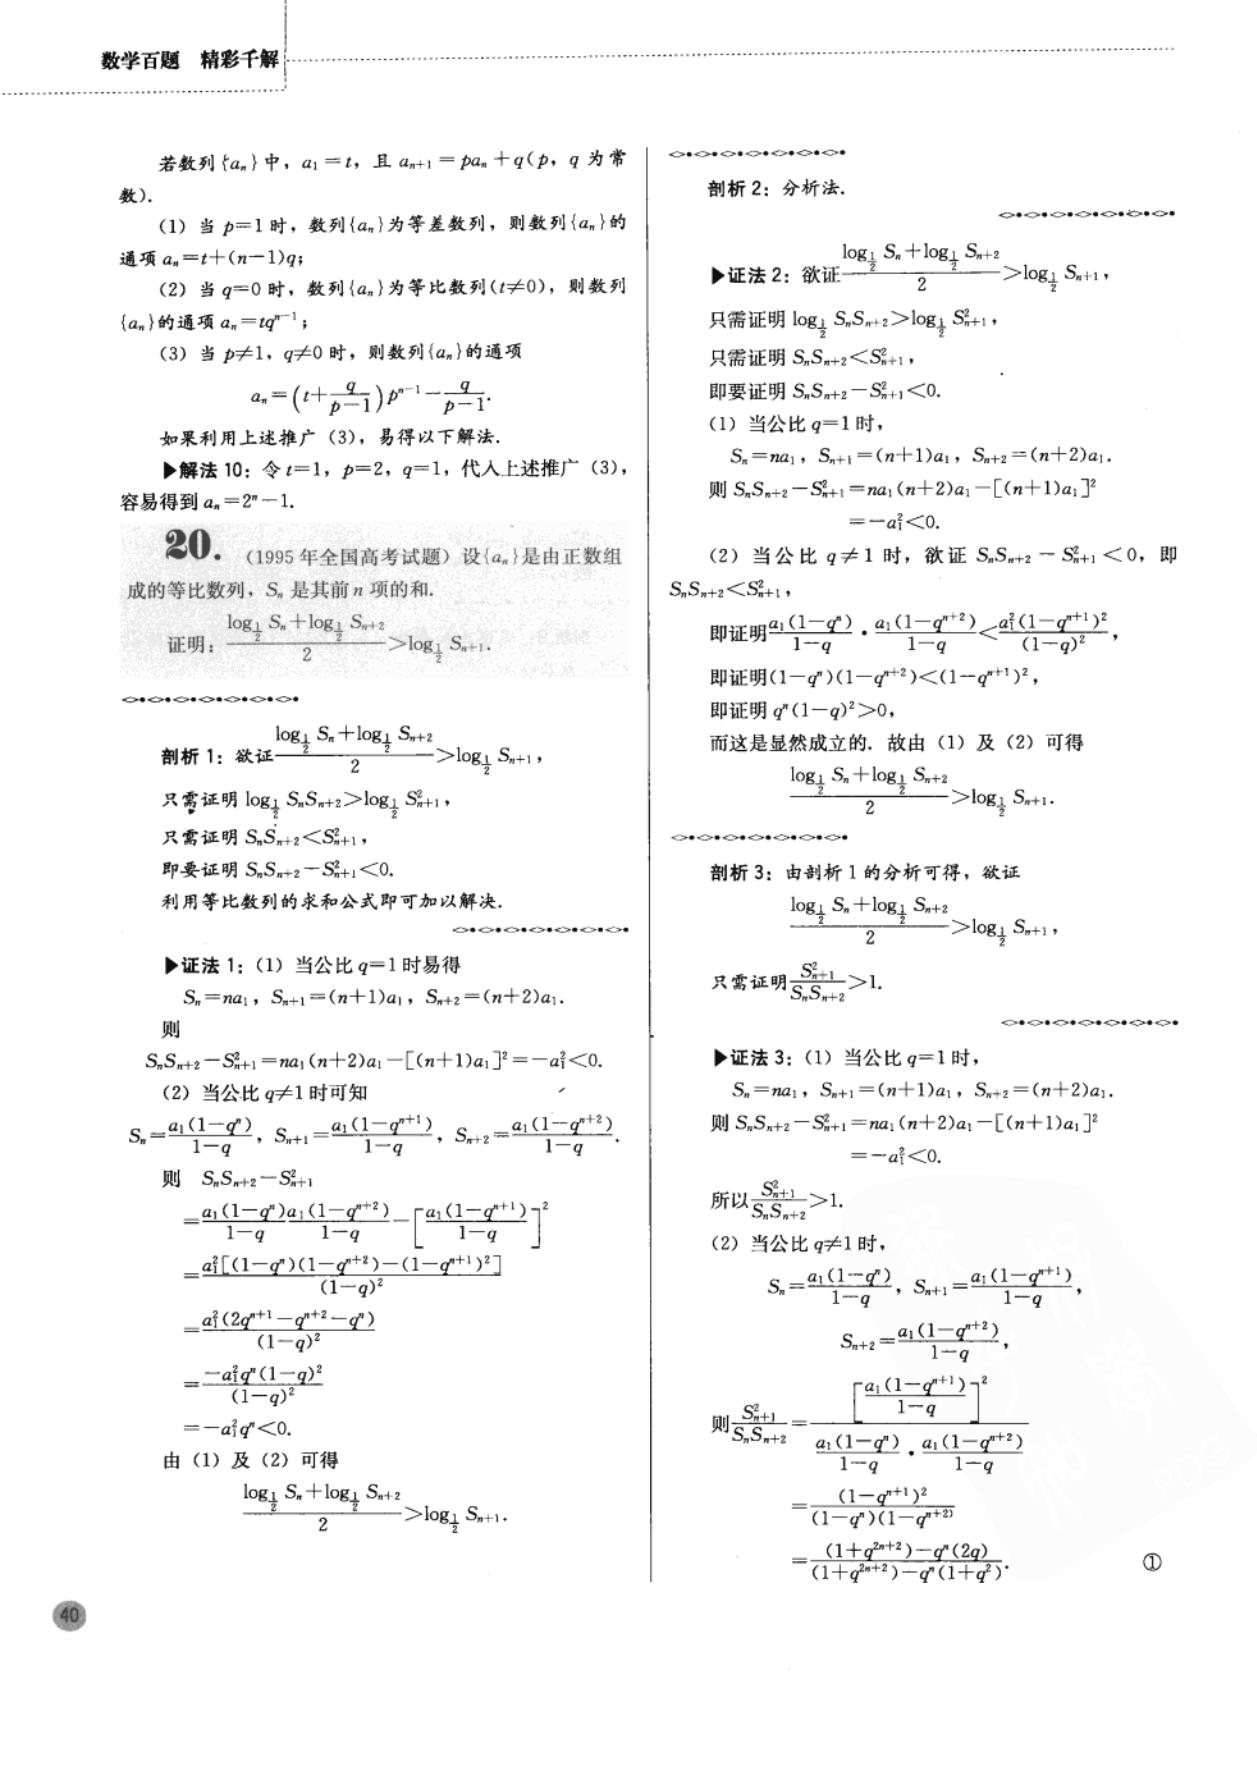 数学百题 精彩千解
若数列{aₙ}中，a₁=t，且 aₙ₊₁=paₙ+q(p，q 为常
数).
(1) 当 p=1 时，数列{aₙ}为等差数列，则数列{aₙ}的
通项 aₙ=t+(n-1)q;
(2) 当 q=0 时，数列{aₙ}为等比数列(t≠0)，则数列
{aₙ}的通项 aₙ=tqⁿ⁻¹;
(3) 当 p≠1，q≠0 时，则数列{aₙ}的通项
aₙ=(t+q/(p-1))pⁿ⁻¹-q/(p-1).
如果利用上述推广 (3)，易得以下解法.
▶解法 10：令 t=1，p=2，q=1，代入上述推广 (3)，
容易得到 aₙ=2ⁿ-1.
20. (1995 年全国高考试题) 设{aₙ}是由正数组
成的等比数列，Sₙ 是其前 n 项的和.
证明：(log_{1/2} Sₙ+log_{1/2} Sₙ₊₂)/2>log_{1/2} Sₙ₊₁.
剖析 1：欲证(log_{1/2} Sₙ+log_{1/2} Sₙ₊₂)/2>log_{1/2} Sₙ₊₁，
只需证明 log_{1/2} SₙSₙ₊₂>log_{1/2} S²ₙ₊₁，
只需证明 SₙSₙ₊₂<S²ₙ₊₁，
即要证明 SₙSₙ₊₂-S²ₙ₊₁<0.
利用等比数列的求和公式即可加以解决.
▶证法 1：(1) 当公比 q=1 时易得
Sₙ=na₁，Sₙ₊₁=(n+1)a₁，Sₙ₊₂=(n+2)a₁.
则
SₙSₙ₊₂-S²ₙ₊₁=na₁(n+2)a₁-[(n+1)a₁]²=-a₁²<0.
(2) 当公比 q≠1 时可知
Sₙ=a₁(1-qⁿ)/(1-q)，Sₙ₊₁=a₁(1-qⁿ⁺¹)/(1-q)，Sₙ₊₂=a₁(1-qⁿ⁺²)/(1-q).
则 SₙSₙ₊₂-S²ₙ₊₁
=a₁(1-qⁿ)/(1-q) a₁(1-qⁿ⁺²)/(1-q)-[a₁(1-qⁿ⁺¹)/(1-q)]²
=a₁²[(1-qⁿ)(1-qⁿ⁺²)-(1-qⁿ⁺¹)²]/(1-q)²
=a₁²(2qⁿ⁺¹-qⁿ⁺²-qⁿ)/(1-q)²
=-a₁²qⁿ(1-q)²/(1-q)²
=-a₁²qⁿ<0.
由 (1) 及 (2) 可得
(log_{1/2} Sₙ+log_{1/2} Sₙ₊₂)/2>log_{1/2} Sₙ₊₁.
剖析 2：分析法.
▶证法 2：欲证(log_{1/2} Sₙ+log_{1/2} Sₙ₊₂)/2>log_{1/2} Sₙ₊₁，
只需证明 log_{1/2} SₙSₙ₊₂>log_{1/2} S²ₙ₊₁，
只需证明 SₙSₙ₊₂<S²ₙ₊₁，
即要证明 SₙSₙ₊₂-S²ₙ₊₁<0.
(1) 当公比 q=1 时，
Sₙ=na₁，Sₙ₊₁=(n+1)a₁，Sₙ₊₂=(n+2)a₁.
则 SₙSₙ₊₂-S²ₙ₊₁=na₁(n+2)a₁-[(n+1)a₁]²
=-a₁²<0.
(2) 当公比 q≠1 时，欲证 SₙSₙ₊₂-S²ₙ₊₁<0，即
SₙSₙ₊₂<S²ₙ₊₁，
即证明a₁(1-qⁿ)/(1-q)·a₁(1-qⁿ⁺²)/(1-q)<a₁²(1-qⁿ⁺¹)²/(1-q)²，
即证明(1-qⁿ)(1-qⁿ⁺²)<(1-qⁿ⁺¹)²，
即证明 qⁿ(1-q)²>0，
而这是显然成立的. 故由 (1) 及 (2) 可得
(log_{1/2} Sₙ+log_{1/2} Sₙ₊₂)/2>log_{1/2} Sₙ₊₁.
剖析 3：由剖析 1 的分析可得，欲证
(log_{1/2} Sₙ+log_{1/2} Sₙ₊₂)/2>log_{1/2} Sₙ₊₁，
只需证明S²ₙ₊₁/(SₙSₙ₊₂)>1.
▶证法 3：(1) 当公比 q=1 时，
Sₙ=na₁，Sₙ₊₁=(n+1)a₁，Sₙ₊₂=(n+2)a₁.
则 SₙSₙ₊₂-S²ₙ₊₁=na₁(n+2)a₁-[(n+1)a₁]²
=-a₁²<0.
所以S²ₙ₊₁/(SₙSₙ₊₂)>1.
(2) 当公比 q≠1 时，
Sₙ=a₁(1-qⁿ)/(1-q)，Sₙ₊₁=a₁(1-qⁿ⁺¹)/(1-q)，
Sₙ₊₂=a₁(1-qⁿ⁺²)/(1-q)，
则S²ₙ₊₁/(SₙSₙ₊₂)=[a₁(1-qⁿ⁺¹)/(1-q)]²/(a₁(1-qⁿ)/(1-q)·a₁(1-qⁿ⁺²)/(1-q))
=(1-qⁿ⁺¹)²/((1-qⁿ)(1-qⁿ⁺²))
=((1+q²ⁿ⁺²)-qⁿ(2q))/((1+q²ⁿ⁺²)-qⁿ(1+q²)). ①
40
PDG